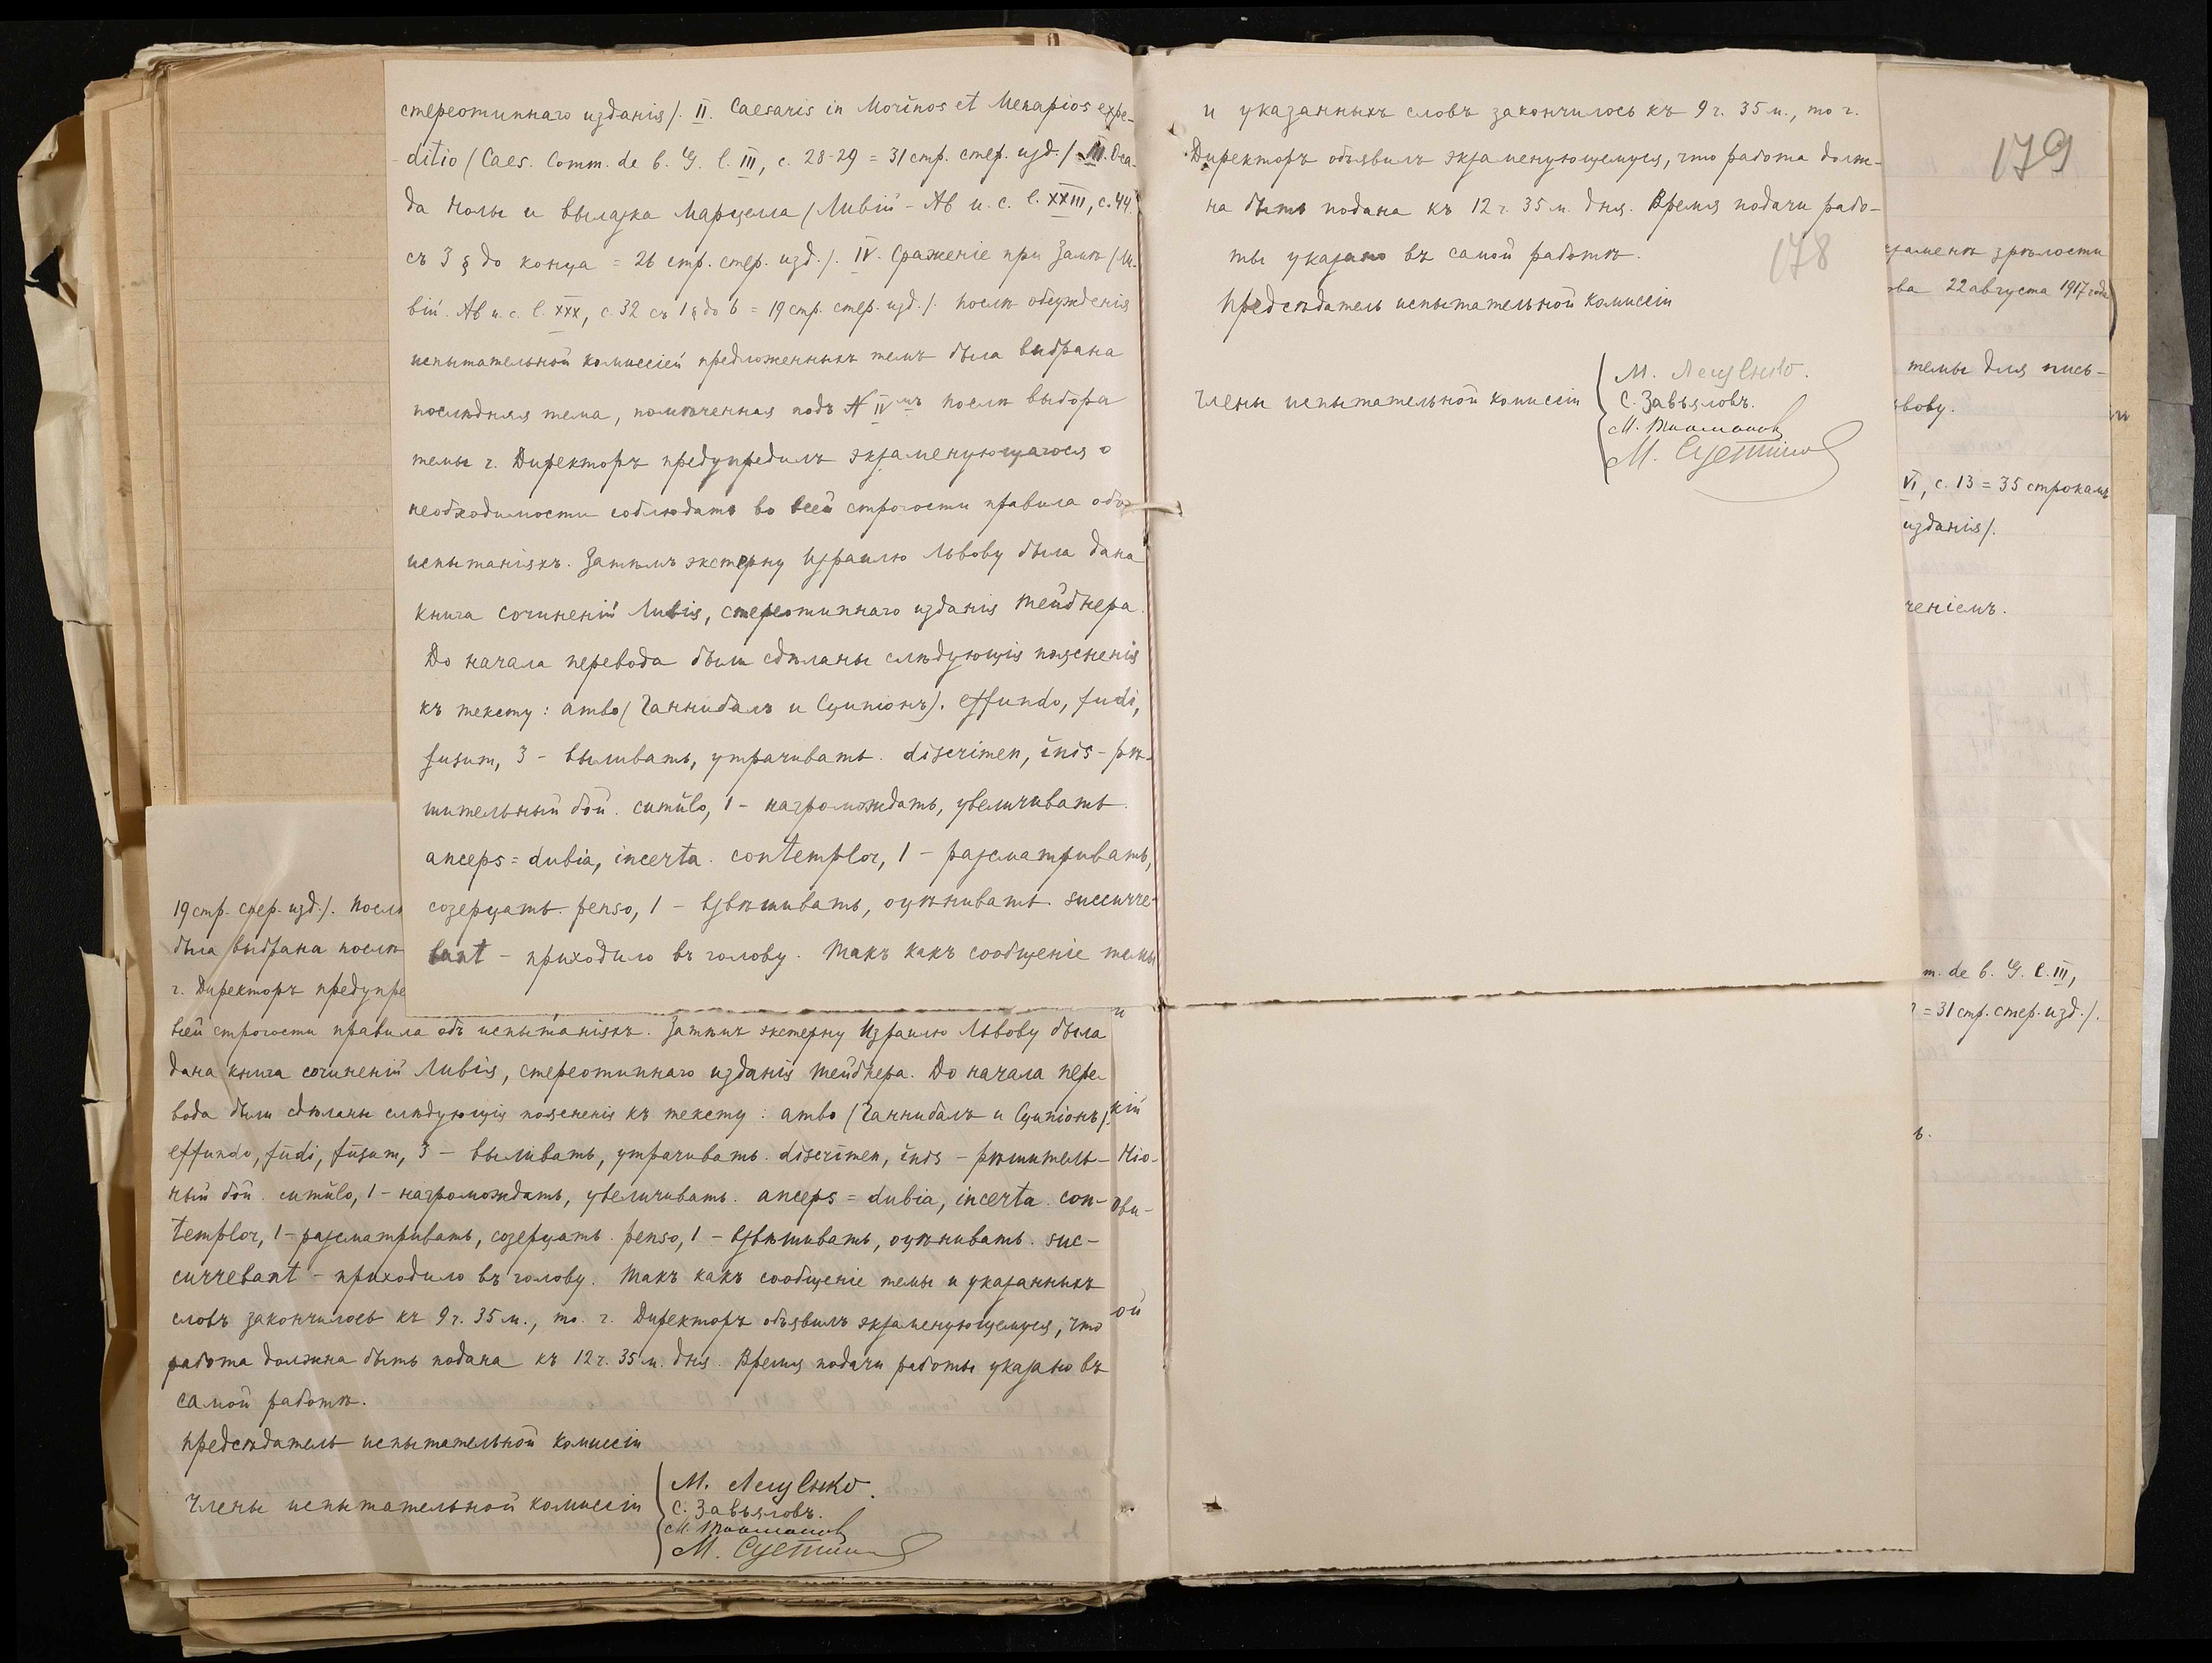 стереотипнаго изданія/. II. Caesaris in Morinos et Menapios expe-
ditio (Caes. Comm. de b. G. l. III, c. 28-29 = 31 стр. стер. изд./ III. Оса-
да Нолы и вылазка Марцелла (Ливій - Ab u. c. l. XXIII, c. 44.
съ 3 § до конца = 26 стр. стер. изд./. IV. Сраженіе при Замѣ (Ли-
вій. Ab u. c. l. XXX, c. 32 съ 1 § до 6 = 19 стр. стер. изд./. Послѣ обсужденія
испытательной комиссіей предложенныхъ темъ была выбрана
послѣдняя тема, помѣченная подъ № IVмъ. Послѣ выбора
темы г. Директоръ предупредилъ экзаменующагося о
необходимости соблюдать во всей строгости правила объ
испытаніяхъ. Затѣмъ экстерну Израилю Львову была дана
книга сочиненій Ливія, стереотипнаго изданія Тейбнера.
До начала перевода были сдѣланы слѣдующія поясненія
къ тексту: ambo (Ганнибалъ и Сципіонъ). effundo, fudi,
fusum, 3 - выливать, утрачивать. discrimen, inis - рѣ-
шительный бой. cumŭlo, 1 - нагромождать, увеличивать.
anceps = dubia, incerta. contemplor, 1 - разсматривать,
созерцать. penso, 1 - взвѣшивать, оцѣнивать. succurre-
bant - приходило въ голову. Такъ какъ сообщеніе темы
и указанныхъ словъ закончилось къ 9 г. 35 м., то г.
Директоръ объявилъ экзаменующемуся, что работа долж-
на быть подана къ 12 г. 35 м. дня. Время подачи рабо-
ты указано въ самой работѣ.
178
Предсѣдатель испытательной комиссіи
Члены испытательной комиссіи
С. Завьяловъ.
179
экзаменѣ зрѣлости
ова 22 августа 1917 года
темы для пись-
ьвову.
VI, c. 13 = 35 строкамъ
изданія/.
ченіемъ.
m. de b. G. l. III,
= 31 стр. стер. изд./.
ъ.
19 стр. стер. изд./. Послѣ
была выбрана послѣ
г. Директоръ предупре
всей строгости правила объ испытаніяхъ. Затѣмъ экстерну Израилю Львову была
дана книга сочиненій Ливія, стереотипнаго изданія Тейбнера. До начала пере-
вода были сдѣланы слѣдующія поясненія къ тексту: ambo (Ганнибалъ и Сципіонъ/.
effundo, fūdi, fūsum, 3 - выливать, утрачивать. discrīmen, ĭnis - рѣшитель-
ный бой. cumŭlo, 1 - нагромождать, увеличивать. anceps = dubia, incerta. con-
templor, 1 - разсматривать, созерцать. penso, 1 - взвѣшивать, оцѣнивать. suc-
currebant - приходило въ голову. Такъ какъ сообщеніе темы и указанныхъ
словъ закончилось къ 9 г. 35 м., то г. Директоръ объявилъ экзаменующемуся, что
работа должна быть подана къ 12 г. 35 м. дня. Время подачи работы указано въ
самой работѣ.
Предсѣдатель испытательной комиссіи
Члены испытательной комиссіи
С. Завьяловъ.